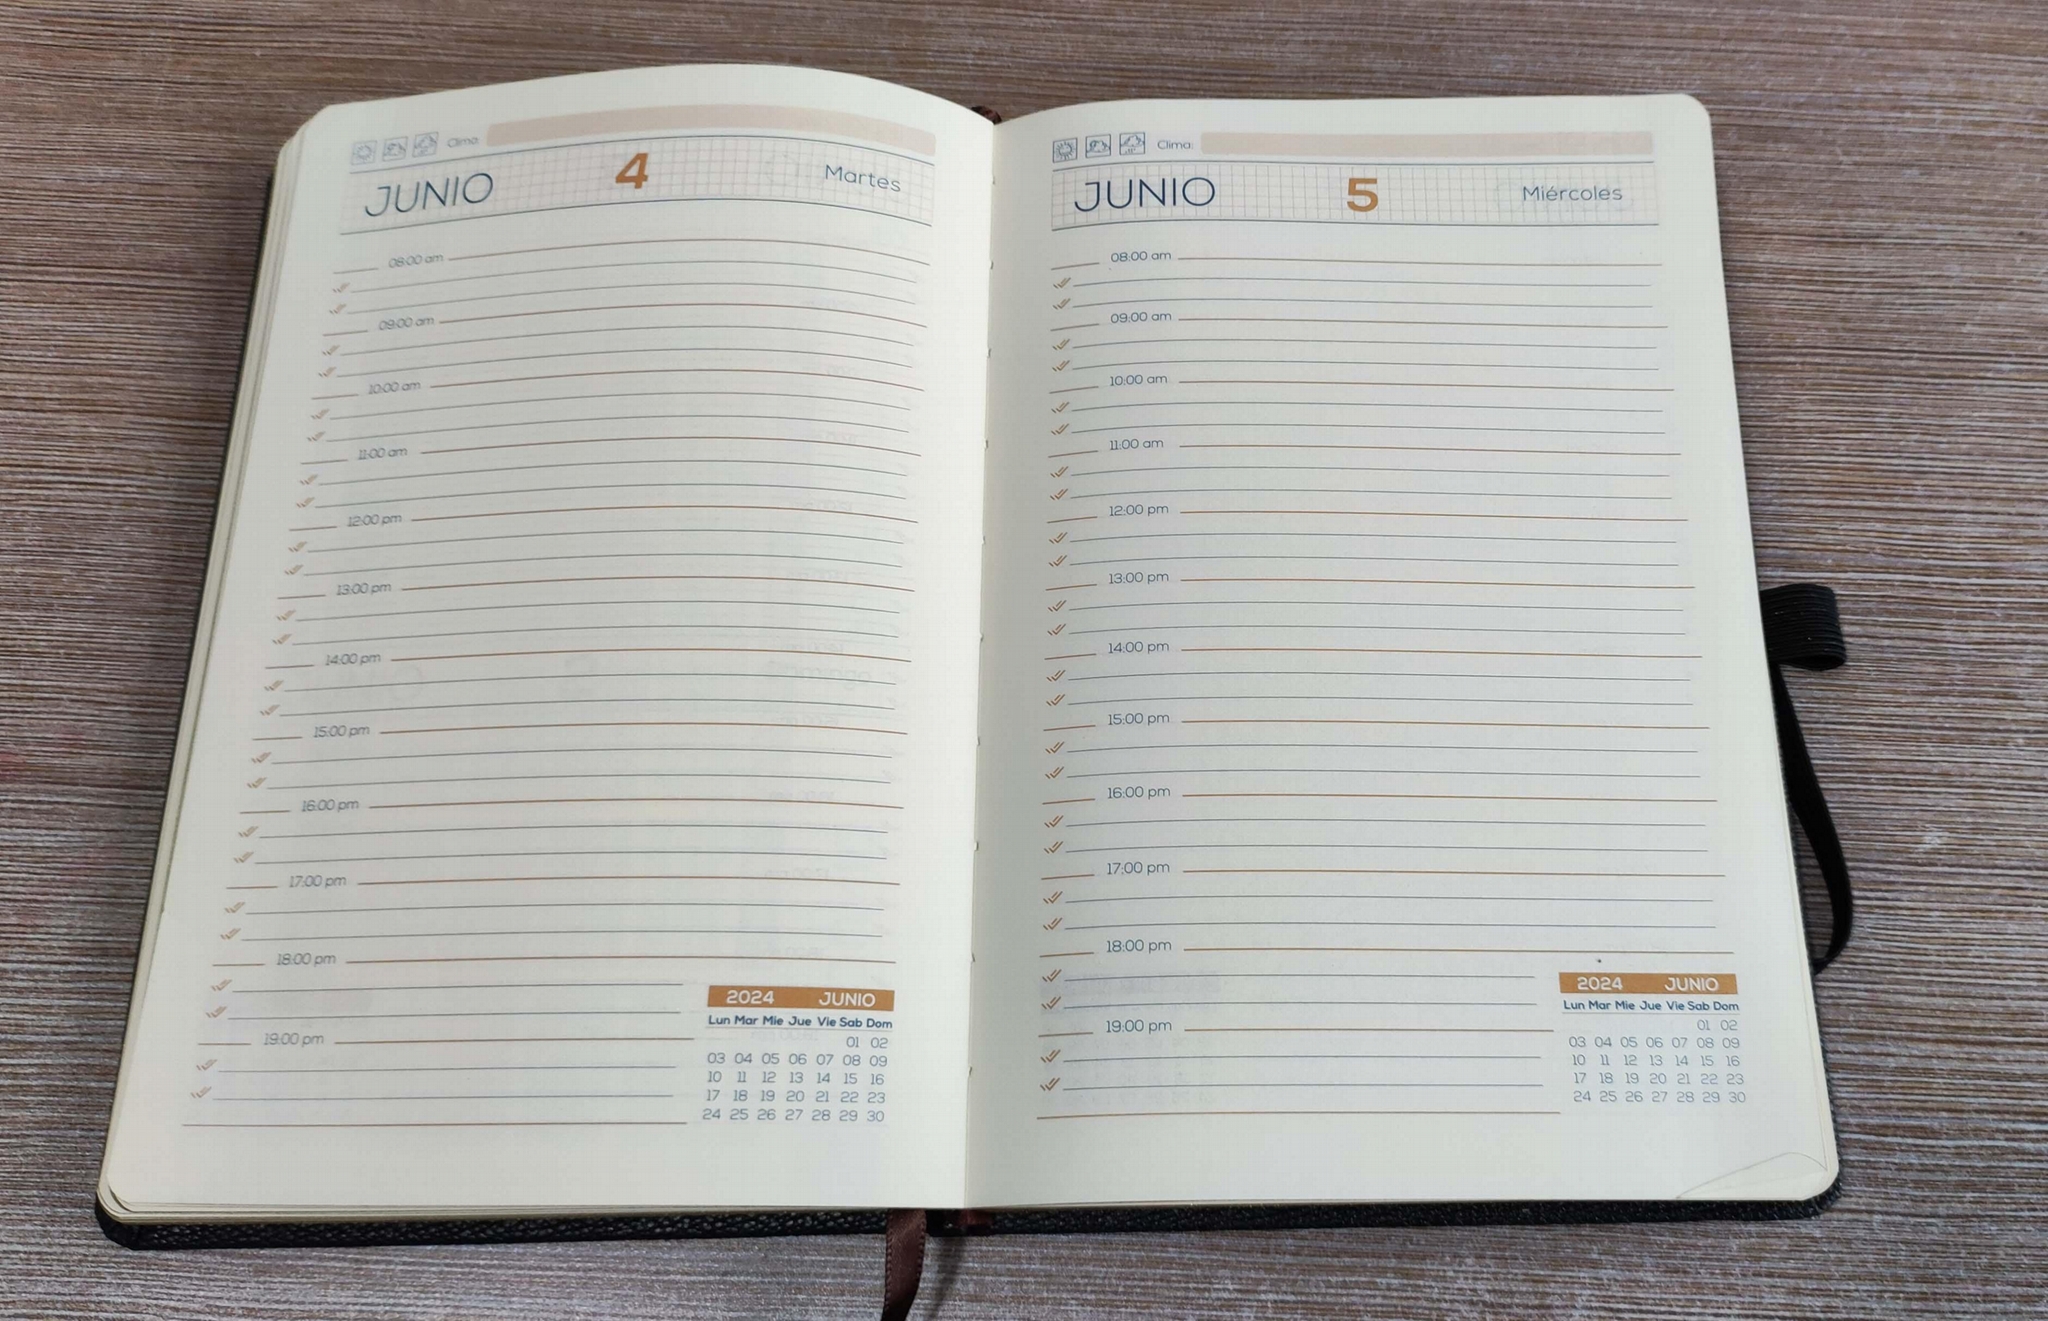 Clima:
JUNIO 4 Martes
08:00 am
09:00 am
10:00 am
11:00 am
12:00 pm
13:00 pm
14:00 pm
15:00 pm
16:00 pm
17:00 pm
18:00 pm
19:00 pm
2024 JUNIO
Lun Mar Mie Jue Vie Sab Dom
01 02
03 04 05 06 07 08 09
10 11 12 13 14 15 16
17 18 19 20 21 22 23
24 25 26 27 28 29 30
Clima:
JUNIO 5 Miércoles
08:00 am
09:00 am
10:00 am
11:00 am
12:00 pm
13:00 pm
14:00 pm
15:00 pm
16:00 pm
17:00 pm
18:00 pm
19:00 pm
2024 JUNIO
Lun Mar Mie Jue Vie Sab Dom
01 02
03 04 05 06 07 08 09
10 11 12 13 14 15 16
17 18 19 20 21 22 23
24 25 26 27 28 29 30